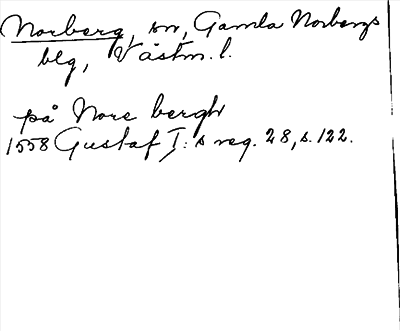 Norberg, sn, Gamla Norbergs
blg, Västm. l.
på Nore bergh
1558 Gustaf I:s reg. 28, s. 122.